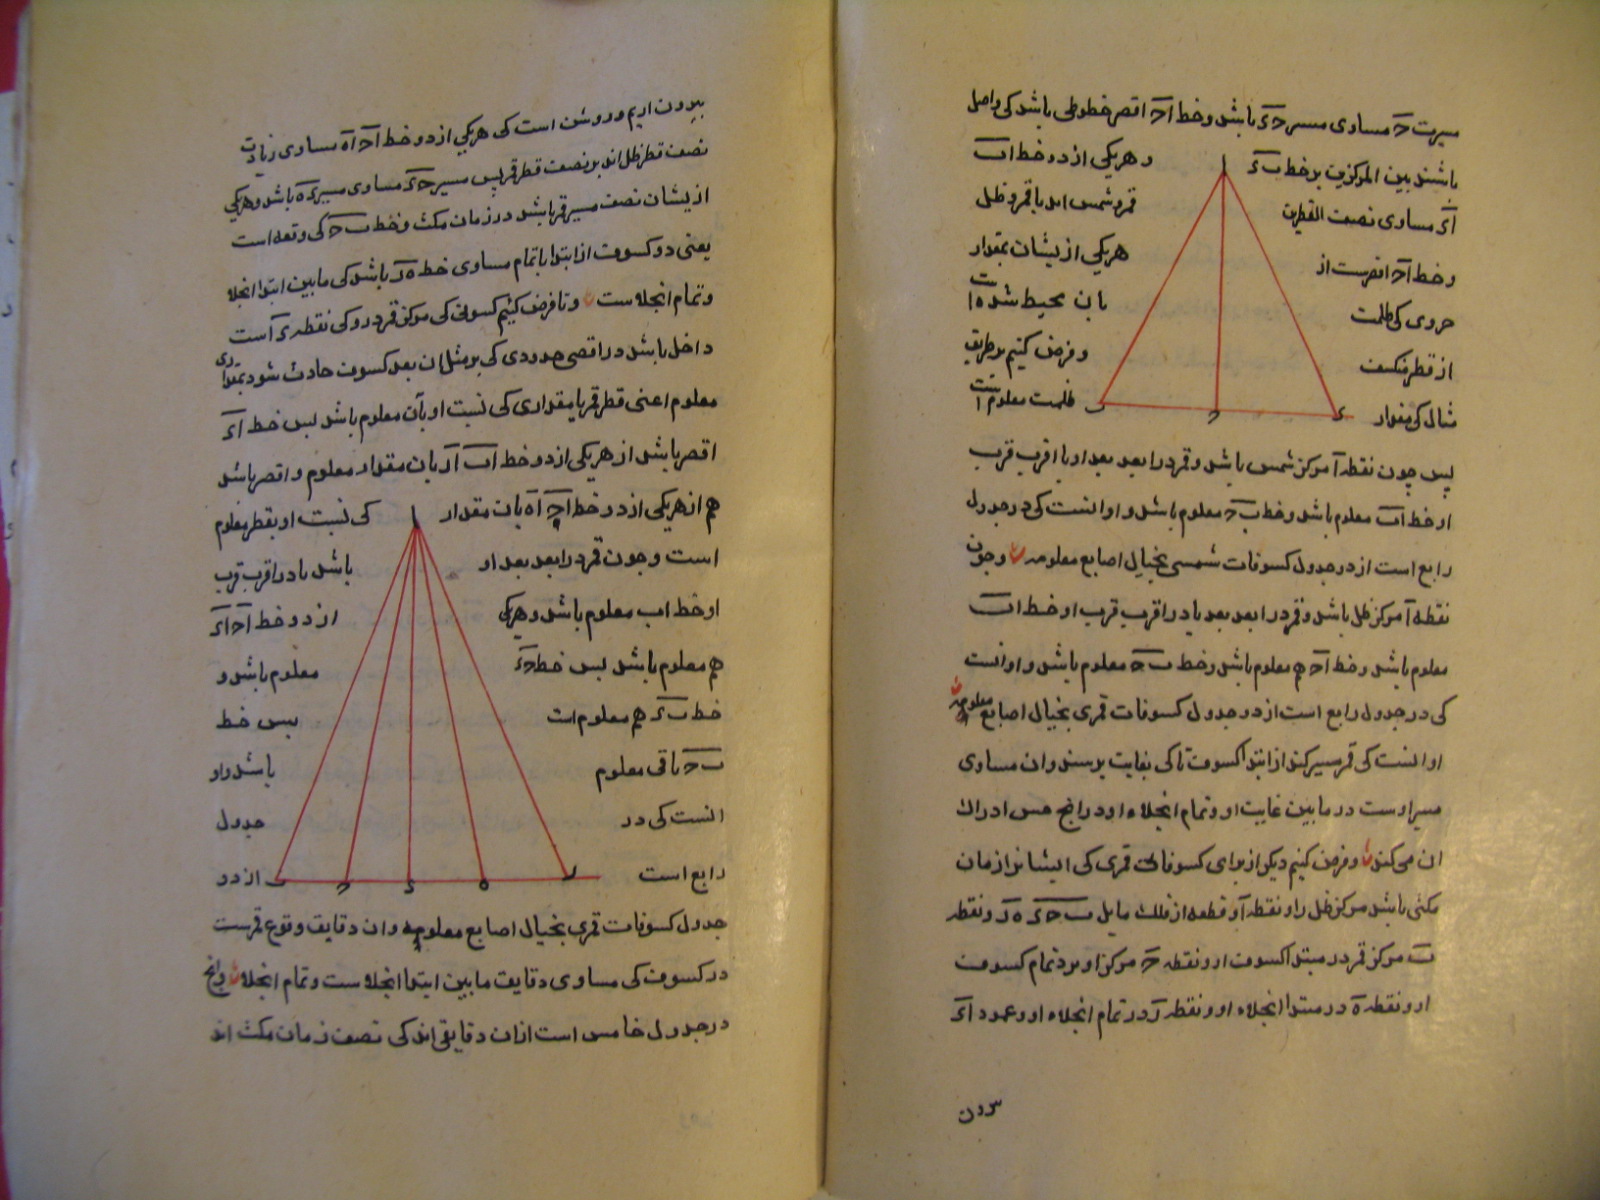 مسیر ب ح مساوی مسیر ح ء باشد و خط ا ح اقصر خطوطی باشد کی واصل
باشند بین المرکزین بر خط ب ء و هریکی از دو خط اب
ا ء مساوی نصف القطرین قمر و شمس اند یا قمر و ظل
و خط ا ح اقصرست از هریکی ازیشان بمقدار
جزوی کی ظلمت بان محیط شده است
از قطر منکسف و فرض کنیم بر طریق
مثال کی مقدار ظلمت معلوم است
ا
ب ح ء
پس چون نقطه ا مرکز شمس باشد و قمر در ابعد بعد او یا اقرب قرب
او خط اب معلوم باشد و خط ب ح معلوم باشد و او انست کی در جدول
رابع است از در جدول کسوفات شمسی بخیال اصابع معلومه و چون
نقطه ا مرکز ظل باشد و قمر در ابعد بعد یا در اقرب قرب او خط اب
معلوم باشد و خط ا ح هم معلوم باشد و خط ب ح معلوم باشد و او انست
کی در جدول رابع است از در جدول کسوفات قمری بخیال اصابع معلومه
او انست کی قمر مسیر کند از ابتدا کسوف تا کی بغایت برسند و ان مساوی
مسیر اوست در ما بین غایت او و تمام انجلاء او در انچ حس ادراک
ان می کند و فرض کنیم دیگر از برای کسوفات قمری کی ایشانرا زمان
مکثی باشد مرکز ظل را و نقطه ا و قطعه از فلک مایل ب ح ء ه ر و نقطه
ب مرکز قمر در مبتدا کسوف او و نقطه ح مرکز او بر د تمام کسوف
او و نقطه ه در مبتدا انجلاء او و نقطه ر در تمام انجلاء او و عمود ا ء
بیرون اریم و روشن است کی هریکی از دو خط ا ح ا ه مساوی زیادت
نصف قطر ظل اند بر نصف قطر قمر پس مسیر ح ء مساوی مسیر ء ه باشد و هریکی
ازیشان نصف مسیر قمر باشد در زمان مکث و خط ب ح کی وقعه است
یعنی دو کسوف از ابتدا باتمام مساوی خط ه ر باشد کی ما بین ابتدا انجلا
و تمام انجلاست و تا فرض کنیم کسوفی کی مرکز قمر درو کی نقطه ء است
داخل باشد در اقصی حدودی کی بر مثل ان بعد کسوف حادث شود بمقداری
معلوم اعنی قطر قمر یا مقداری کی نسبت او بآن معلوم باشد پس خط ا ء
اقصر باشد از هریکی از دو خط اب ا ر بان مقدار معلوم و اقصر باشد
هم از هریکی از دو خط ا ح ا ه بان مقدار کی نسبت او بقطر معلوم
است و چون قمر در ابعد بعد او باشد یا در اقرب قرب
او خط اب معلوم باشد و هریکی از دو خط ا ح ا ء
هم معلوم باشد پس خط ح ء معلوم باشد و
خط ب ء هم معلوم است پس خط
ب ح باقی معلوم باشد و او
انست کی در جدول
رابع است از در
ا
ب ح ء ه ر
جدول کسوفات قمری بخیال اصابع معلومه و ان دقایق وقوع قمرست
در کسوف کی مساوی دقایق ما بین ابتدا انجلاست و تمام انجلا و انچ
در جدول خامس است از ان دقایقی اند کی نصف زمان مکث اند